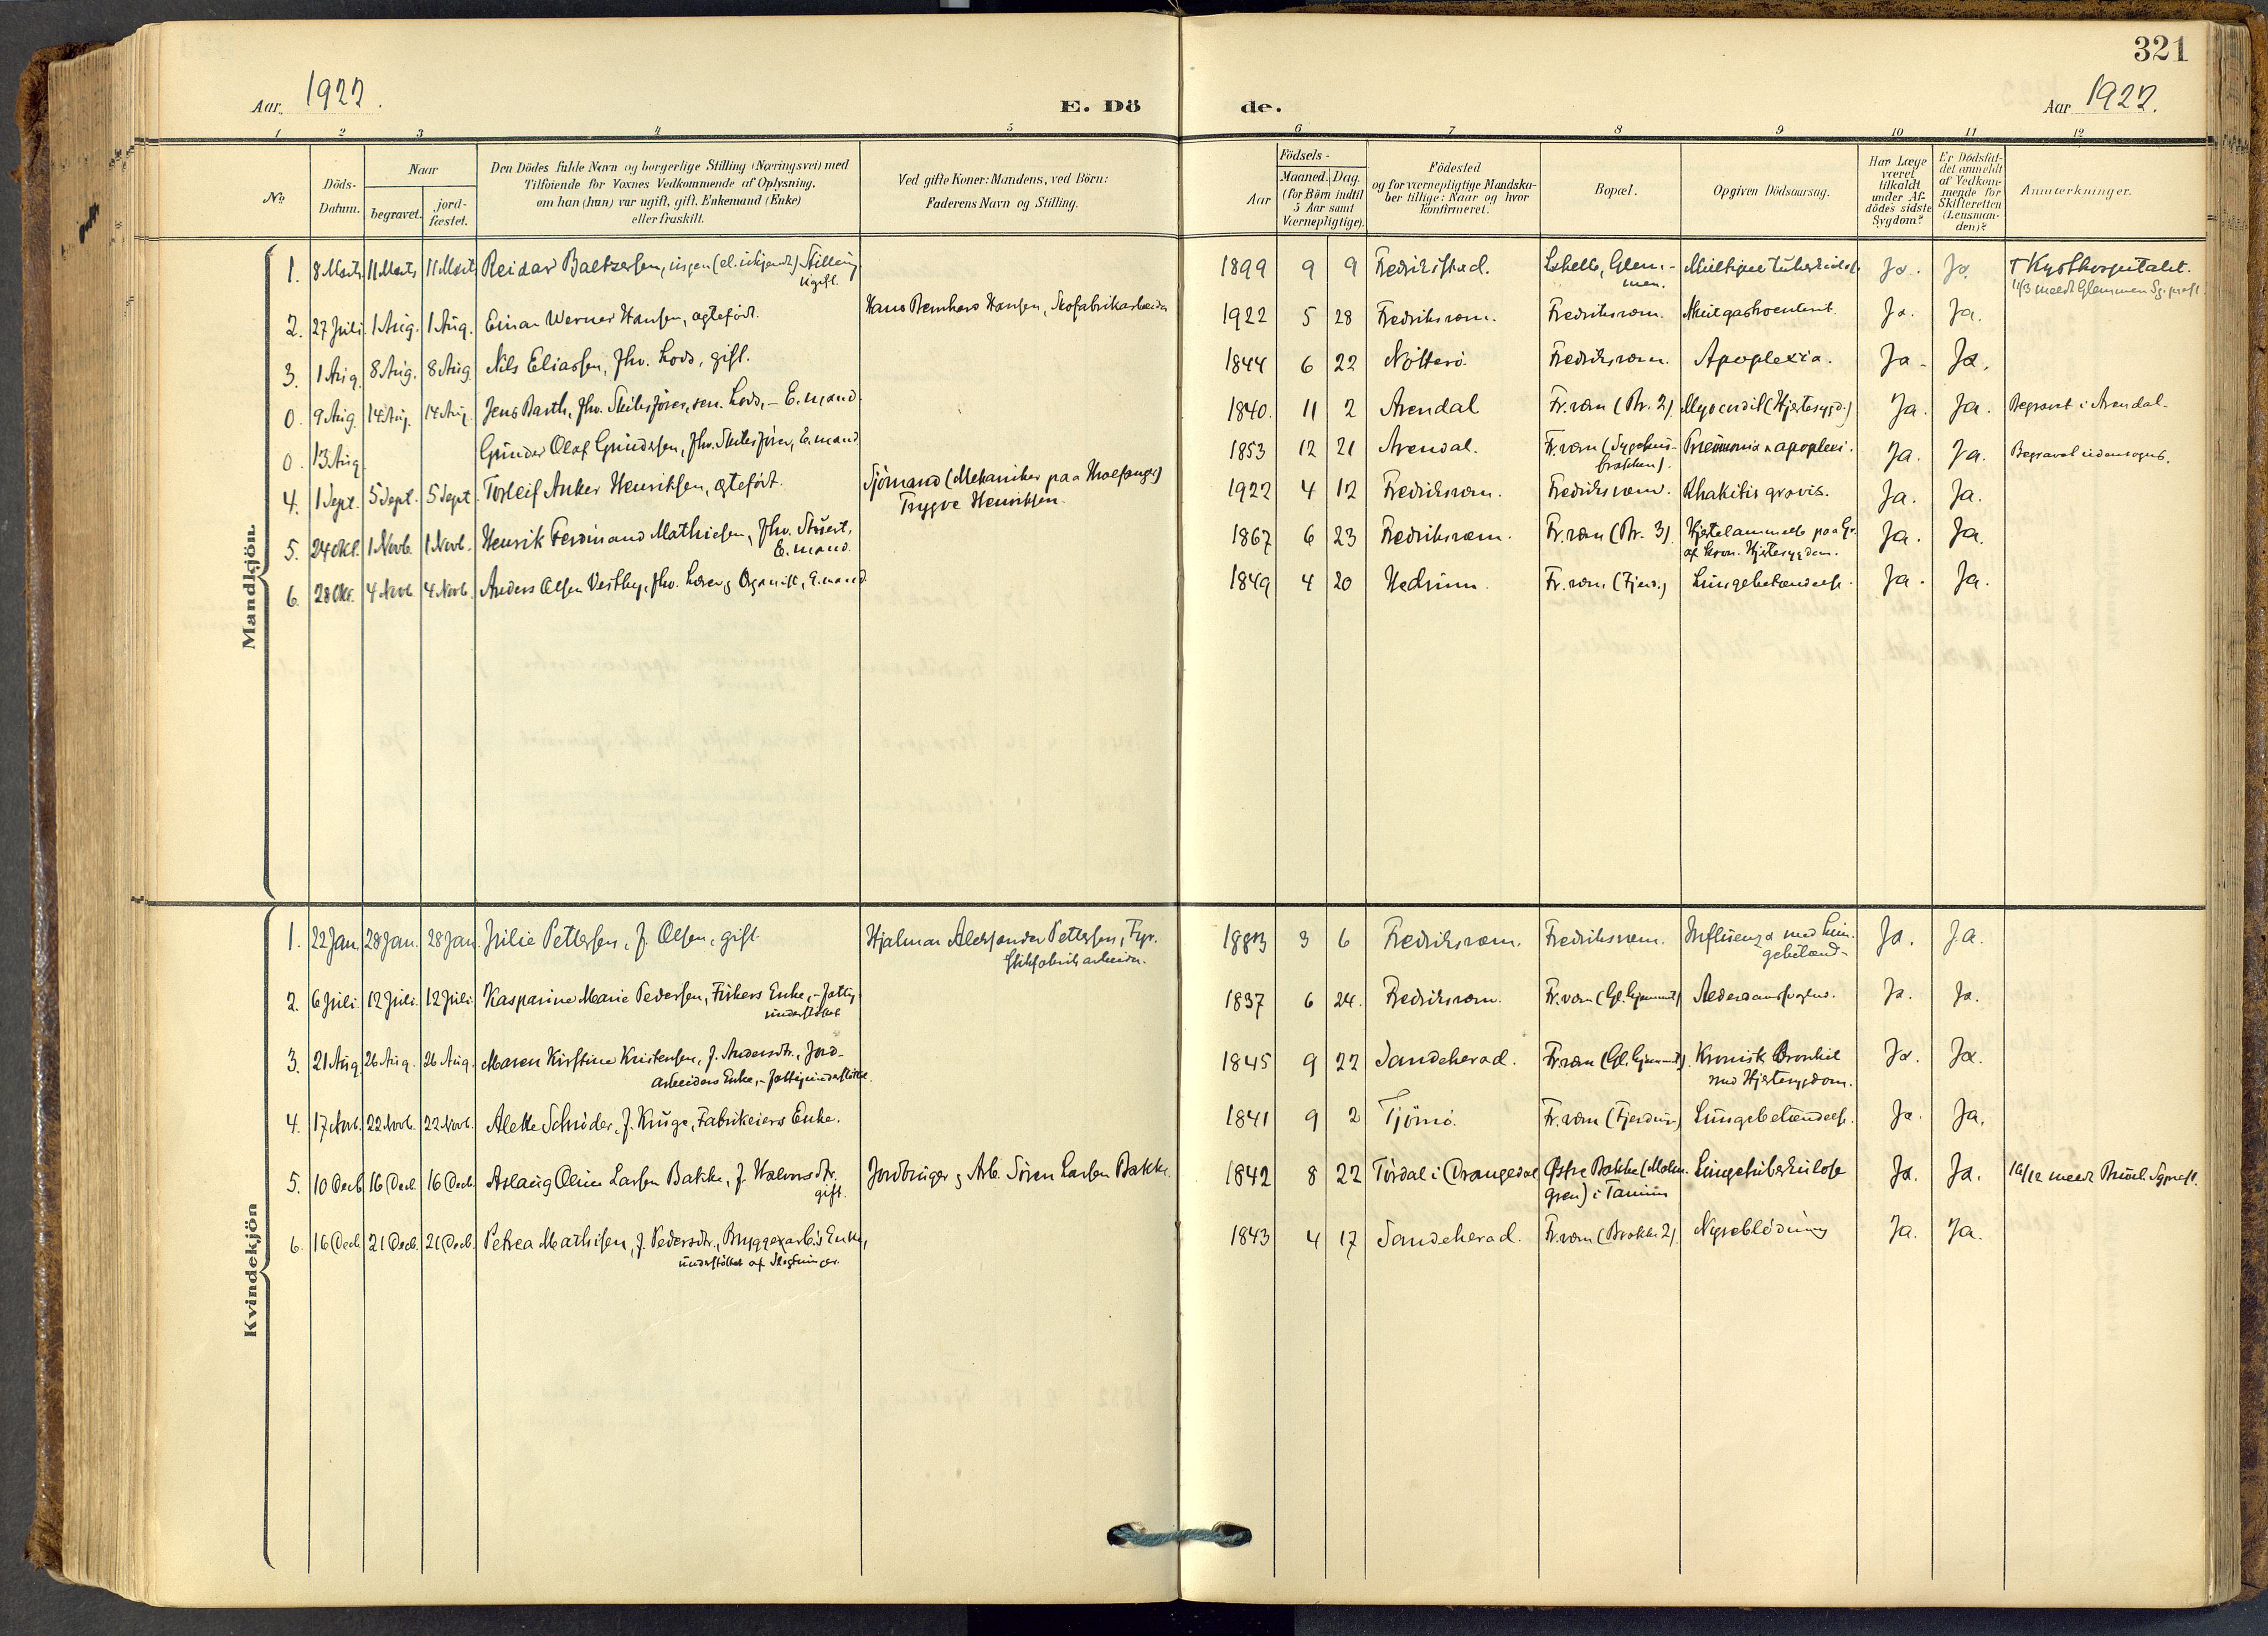 321
Aar. 1922.
E. Dö de.
Aar 1922.
1 2 3 4 5 6 7 8 9 10 11 12
No
Döds-Datum.
Naar
begravet.
jord-fæstet.
Den Dödes fulde Navn og borgerlige Stilling (Næringsvei) med
Tilføiende for Voxnes Vedkommende af Oplysning,
om han (hun) var ugift, gift, Enkemand (Enke)
eller fraskilt.
Ved gifte Koner: Mandens, ved Börn:
Faderens Navn og Stilling.
Födsels-
Aar
Maaned. Dag.
(for Börn indtil
5 Aar samt
Værnepligtige).
Födested
og for værnepligtige Mandska-
ber tillige: Naar og hvor
konfirmeret.
Bopæl.
Opgiven Dödsaarsag.
Har Læge
været
tilkaldt
under Af-
dödes sidste
Sygdom?
Er Dödsfal-
det anmeldt
af Vedkom-
mende for
Skifteretten
(Lensman-
den)?
Anmærkninger.
Mandkjön.
1. 8 Marts 11 Marts 11 Marts Reidar Baltzersen, ingen (el. ukjendt) Stilling
ugift.
1899 9 9 Fredrikstad. Lahelle, Glem-
men. Multipel tuberkulose Ja. Ja. † Kysthospitalet.
11/3 meldt Glemmen Sg. prest.
2. 27 Juli 1 Aug. 1 Aug. Einar Werner Hansen, ægtefödt. Hans Bernhard Hansen, Skofabrikarbeider 1922 5 28 Fredriksværn. Fredriksværn. Akut gastroenterit. Ja. Ja.
3. 1 Aug. 8 Aug. 8 Aug. Nils Eliassen, fhv. Lods, gift. 1844 6 22 Nötterö. Fredriksværn. Apoplexia. Ja. Ja.
0. 9 Aug. 14 Aug. 14 Aug. Jens Barth, fhv. Skibsförer, sen. Lods, - E.mand. 1840. 11 2 Arendal Fr.værn (Br. 2) Myocardit (Hjertesygd.) Ja. Ja. Begravet i Arendal.
0. 13 Aug. Gunder Olaf Gundersen, fhv. Skibsförer, E.mand 1853 12 21 Arendal. Fr.værn (Sygehus-
brakken). Pneumonia & apoplexi. Ja. Ja. Begravet udensogns.
4. 1 Sept. 5 Sept. 5 Sept. Torleif Anker Henriksen, ægtefödt. Sjömand (Mekaniker paa Hvalfanger)
Trygve Henriksen. 1922 4 12 Fredriksværn. Fredriksværn. Rhakitis gravis. Ja. Ja.
5. 24 Okt. 1 Novb. 1 Novb. Henrik Ferdinand Mathiesen, fhv. Stuert,
E.mand. 1867 6 23 Fredriksværn. Fr.værn (Br. 3). Hjertelammelse paa Gr.
af kron. Hjertesygdom. Ja. Ja.
6. 28 Okt. 4 Novb. 4 Novb. Anders Olsen Vestby, fhv. Lærer & Organist, E.mand 1849 4 20 Hedrum. Fr.værn (Fjerd.) Lungebetændelse. Ja. Ja.
Kvindekjön
1. 22 Jan. 28 Jan. 28 Jan. Julie Pettersen, f. Olsen, gift. Hjalmar Aleksander Pettersen, Fyr-
stikfabrikarbeider. 1883 3 6 Fredriksværn. Fredriksværn. Influenza med Lun-
gebetænd- Ja. Ja.
2. 6 Juli. 12 Juli. 12 Juli. Kasparine Marie Pedersen, Fiskers Enke, - fattig-
understöttet 1837 6 24. Fredriksværn. Fr.værn Alderdomssvaghed. Ja. Ja.
3. 21 Aug. 26 Aug. 26 Aug. Maren Kirstine Kristensen, f. Andersdtr., Jord-
arbeiders Enke, - fattigunderstöttet. 1845 9 22 Sandeherad. Fr.værn Kronisk Bronkit
med Hjertesygdom. Ja. Ja.
4. 17 Novb. 22 Novb. 22 Novb. Alette Schröder, f. Kruge, Fabrikeiers Enke. 1841 9 2 Tjömö. Fr.værn (Fjerdin-) Lungebetændelse. Ja. Ja.
5. 10 Decb. 16 Decb. 16 Decb. Aslaug Oline Larsen Bakke, f. Halvorsdtr.
gift. Jordbruger & Arb. Sören Larsen Bakke. 1842 8 22 Tördal i Drangedal Østre Bakke (Malm-
gren) i Tanum Lungetuberkulose Ja. Ja. 19/12 meldt Brunl. Sgprest.
6. 16 Decb. 21 Decb. 21 Decb. Petrea Mathisen, f. Pedersdtr., Bryggearb.s Enke,
understöttet af Slegtninger. 1843 4 17 Sandeherad. Fr.værn (Brakke 2). Nyreblödning Ja. Ja.